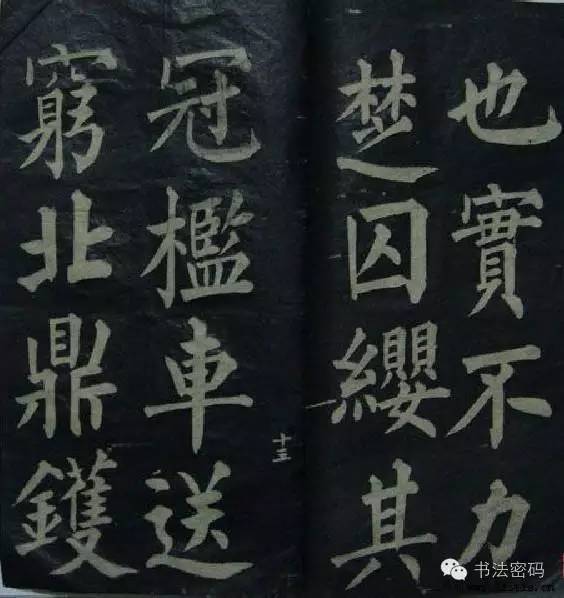 也實不力
楚囚纓其
十三
冠檻車送
窮北鼎鑊
书法密码